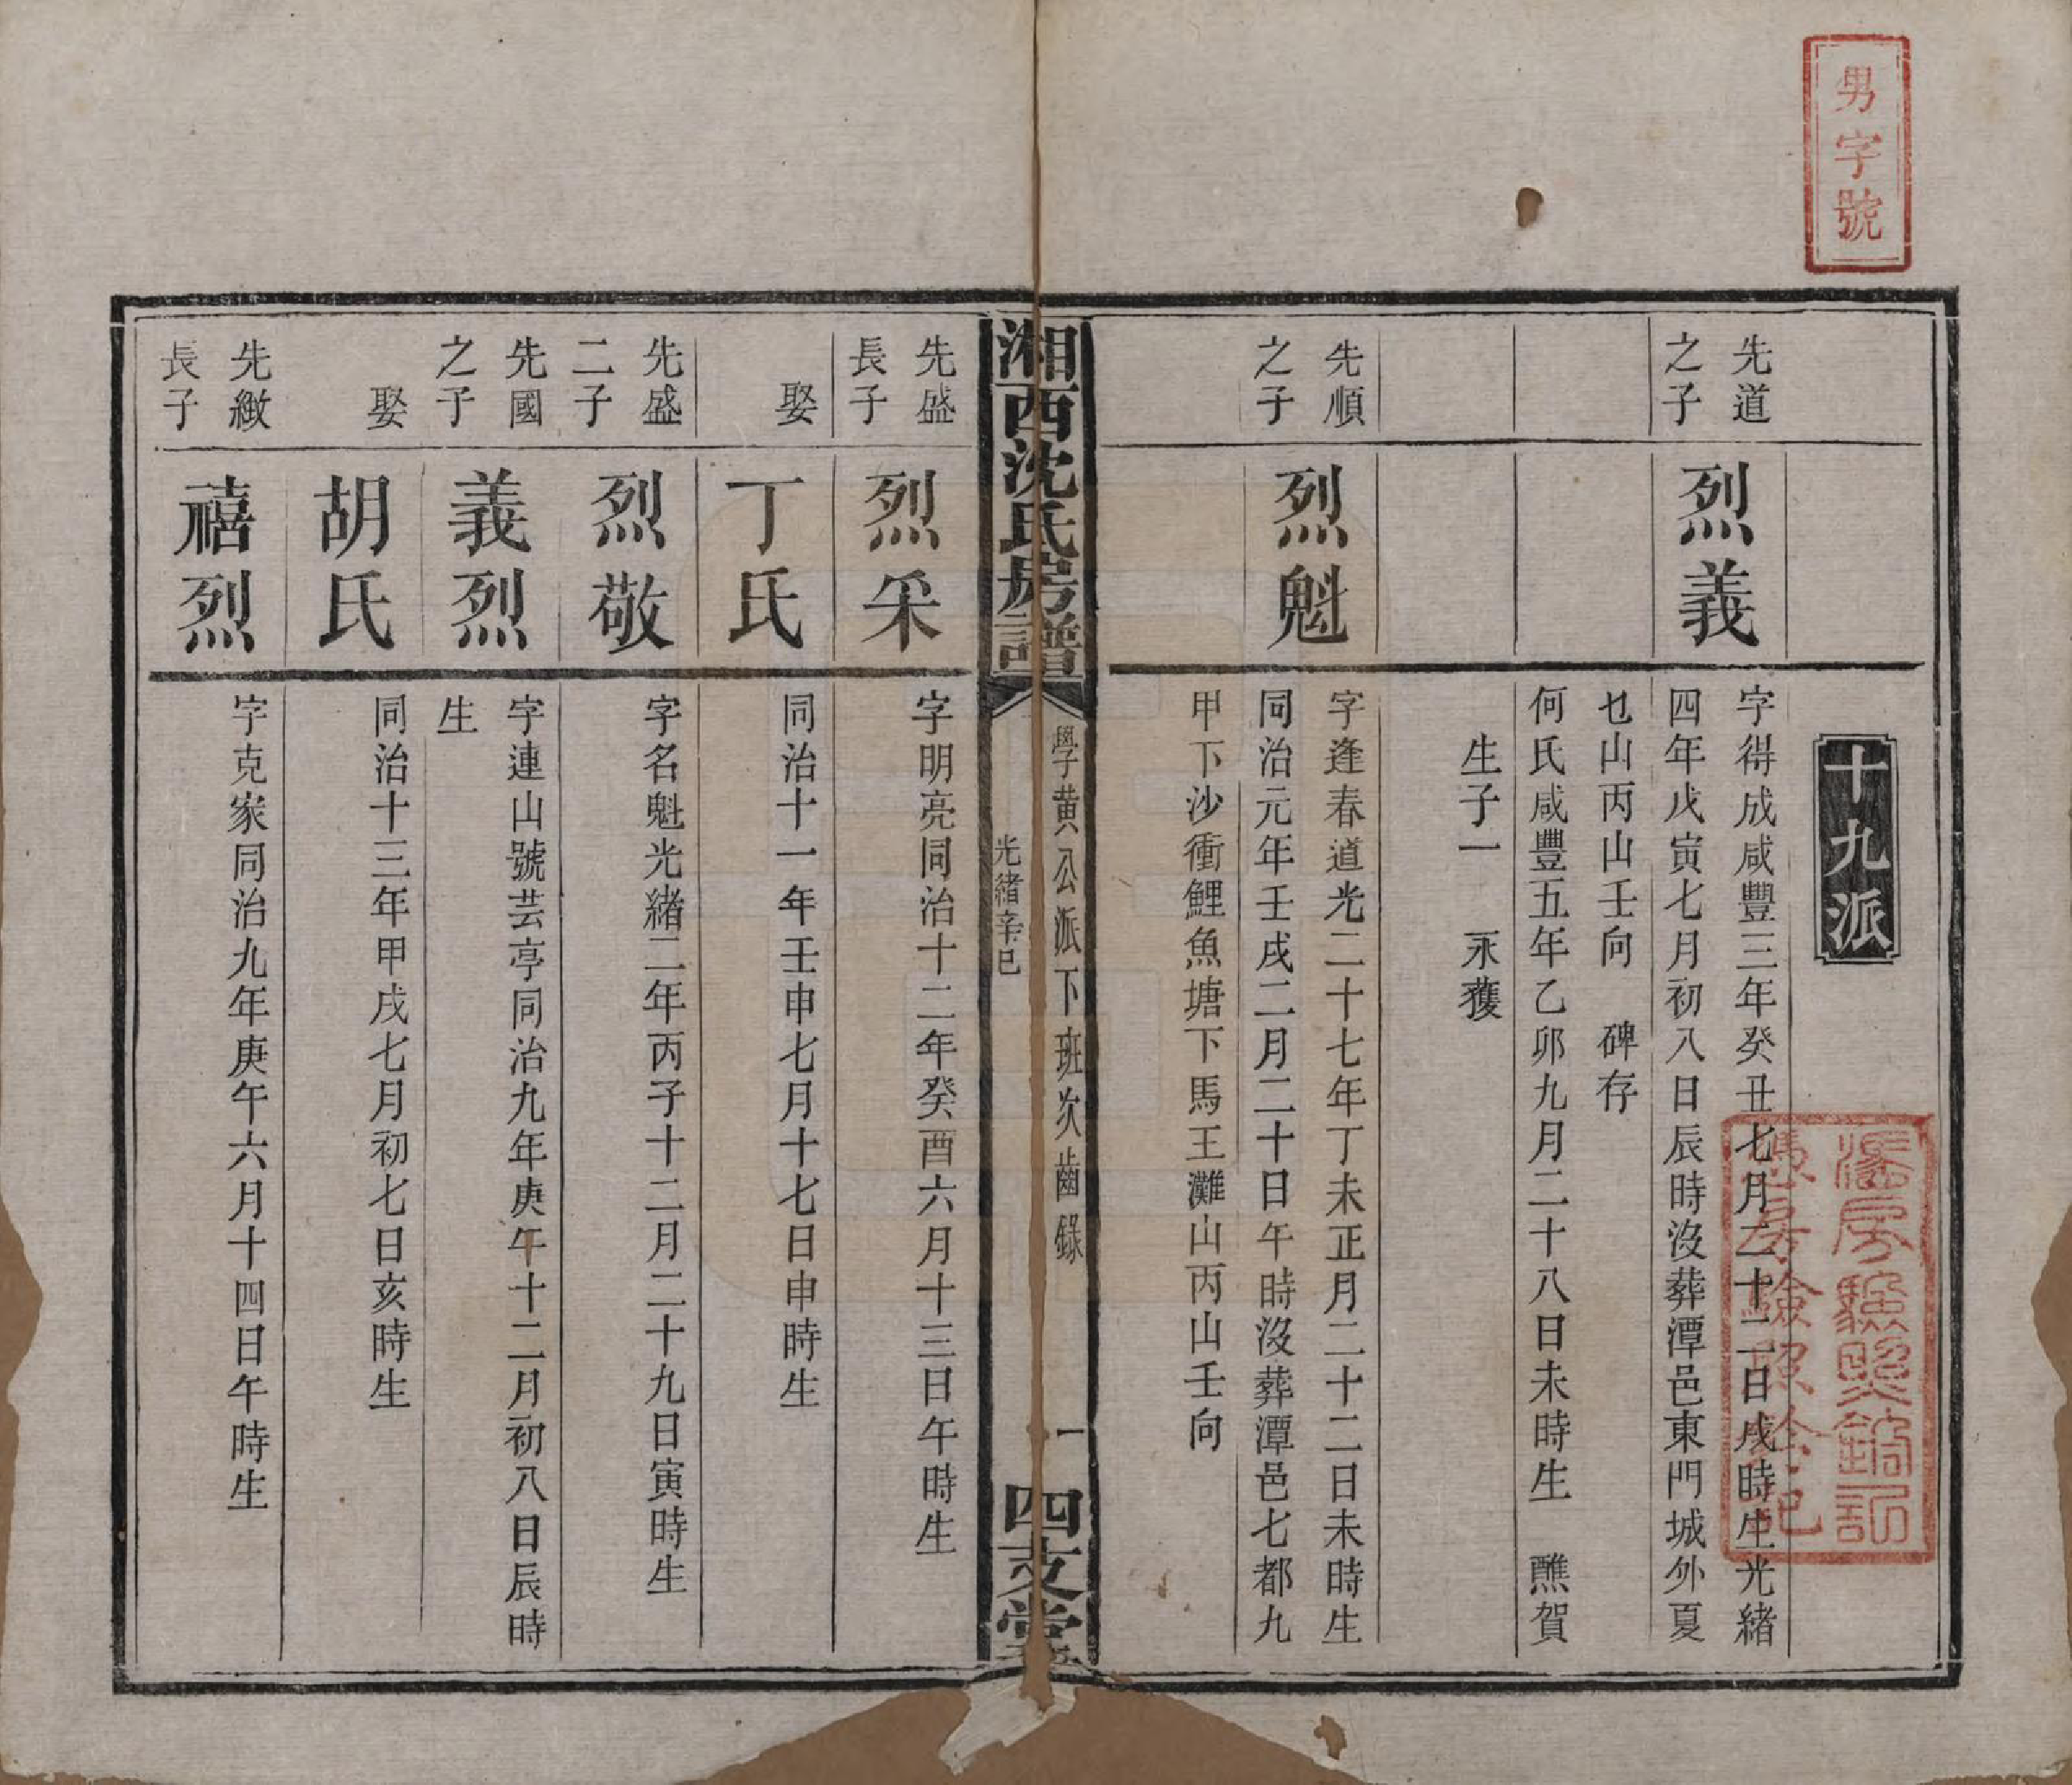 男字號
十九派
先道之子
烈義
字得成咸豐三年癸丑七月二十二日戌時生光緒
四年戊寅七月初八日辰時沒葬潭邑東門城外夏
乜山丙山壬向　碑存
何氏咸豐五年乙卯九月二十八日未時生　醮賀
生子一　永獲
先順之子
烈魁
字逢春道光二十七年丁未正月二十二日未時生
同治元年壬戌二月二十日午時沒葬潭邑七都九
甲下沙衝鯉魚塘下馬王灘山丙山壬向
湘西沈氏房譜
學黄公派下班次齒錄
光緒辛巳
一
四支堂
先盛長子
烈采
字明亮同治十二年癸酉六月十三日午時生
娶
丁氏
同治十一年壬申七月十七日申時生
先盛二子
烈敬
字名魁光緒二年丙子十二月二十九日寅時生
先國之子
義烈
字連山號芸亭同治九年庚午十二月初八日辰時
生
娶
胡氏
同治十三年甲戌七月初七日亥時生
先緻長子
禧烈
字克家同治九年庚午六月十四日午時生